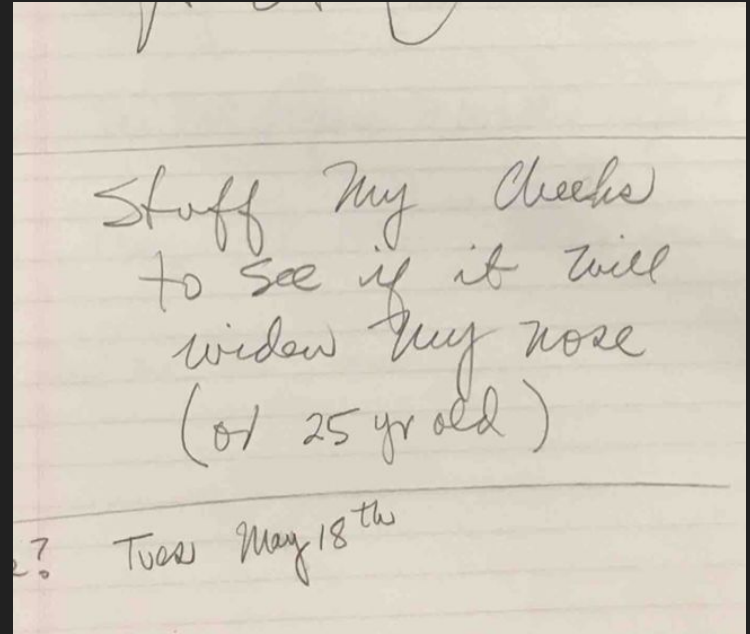 Stuff My Cheeks
to see if it will
widen my nose
(or 25 yr old)
? Tues May 18th